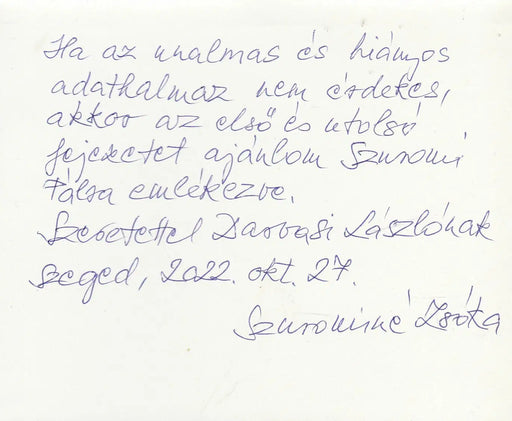 Ha az unalmas és hiányos
adathalmaz nem érdekes,
akkor az első és utolsó
fejezetet ajánlom Szuromi
Pálra emlékezve.
Szeretettel Darvasi Lászlónak
Szeged, 2022. okt. 27.
Szurominé Zsóka